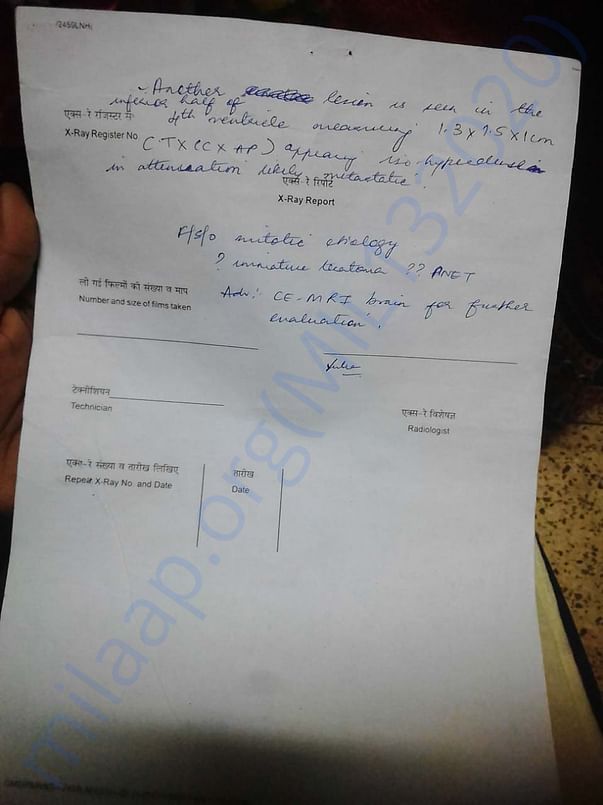 2459LNH
- Another lesion is seen in the
inferior half of
4th ventricle measuring 1.3 x 1.5 x 1cm
एक्स-रे रजिस्टर सं
X-Ray Register No
(TX CC X AP) appearing iso-hyperdense
in attenuation likely metastatic.
एक्स-रे रिपोर्ट
X-Ray Report
F/S/O mitotic etiology
? immature teratoma ?? PNET
ली गई फिल्मों की संख्या व माप
Number and size of films taken
Adv: CE-MRI brain for further
evaluation.
टेक्नीशियन
Technician
एक्स-रे विशेषज्ञ
Radiologist
एक्स-रे संख्या व तारीख लिखिए
Repeat X-Ray No. and Date
तारीख
Date
milaap.org(MIL1132020)